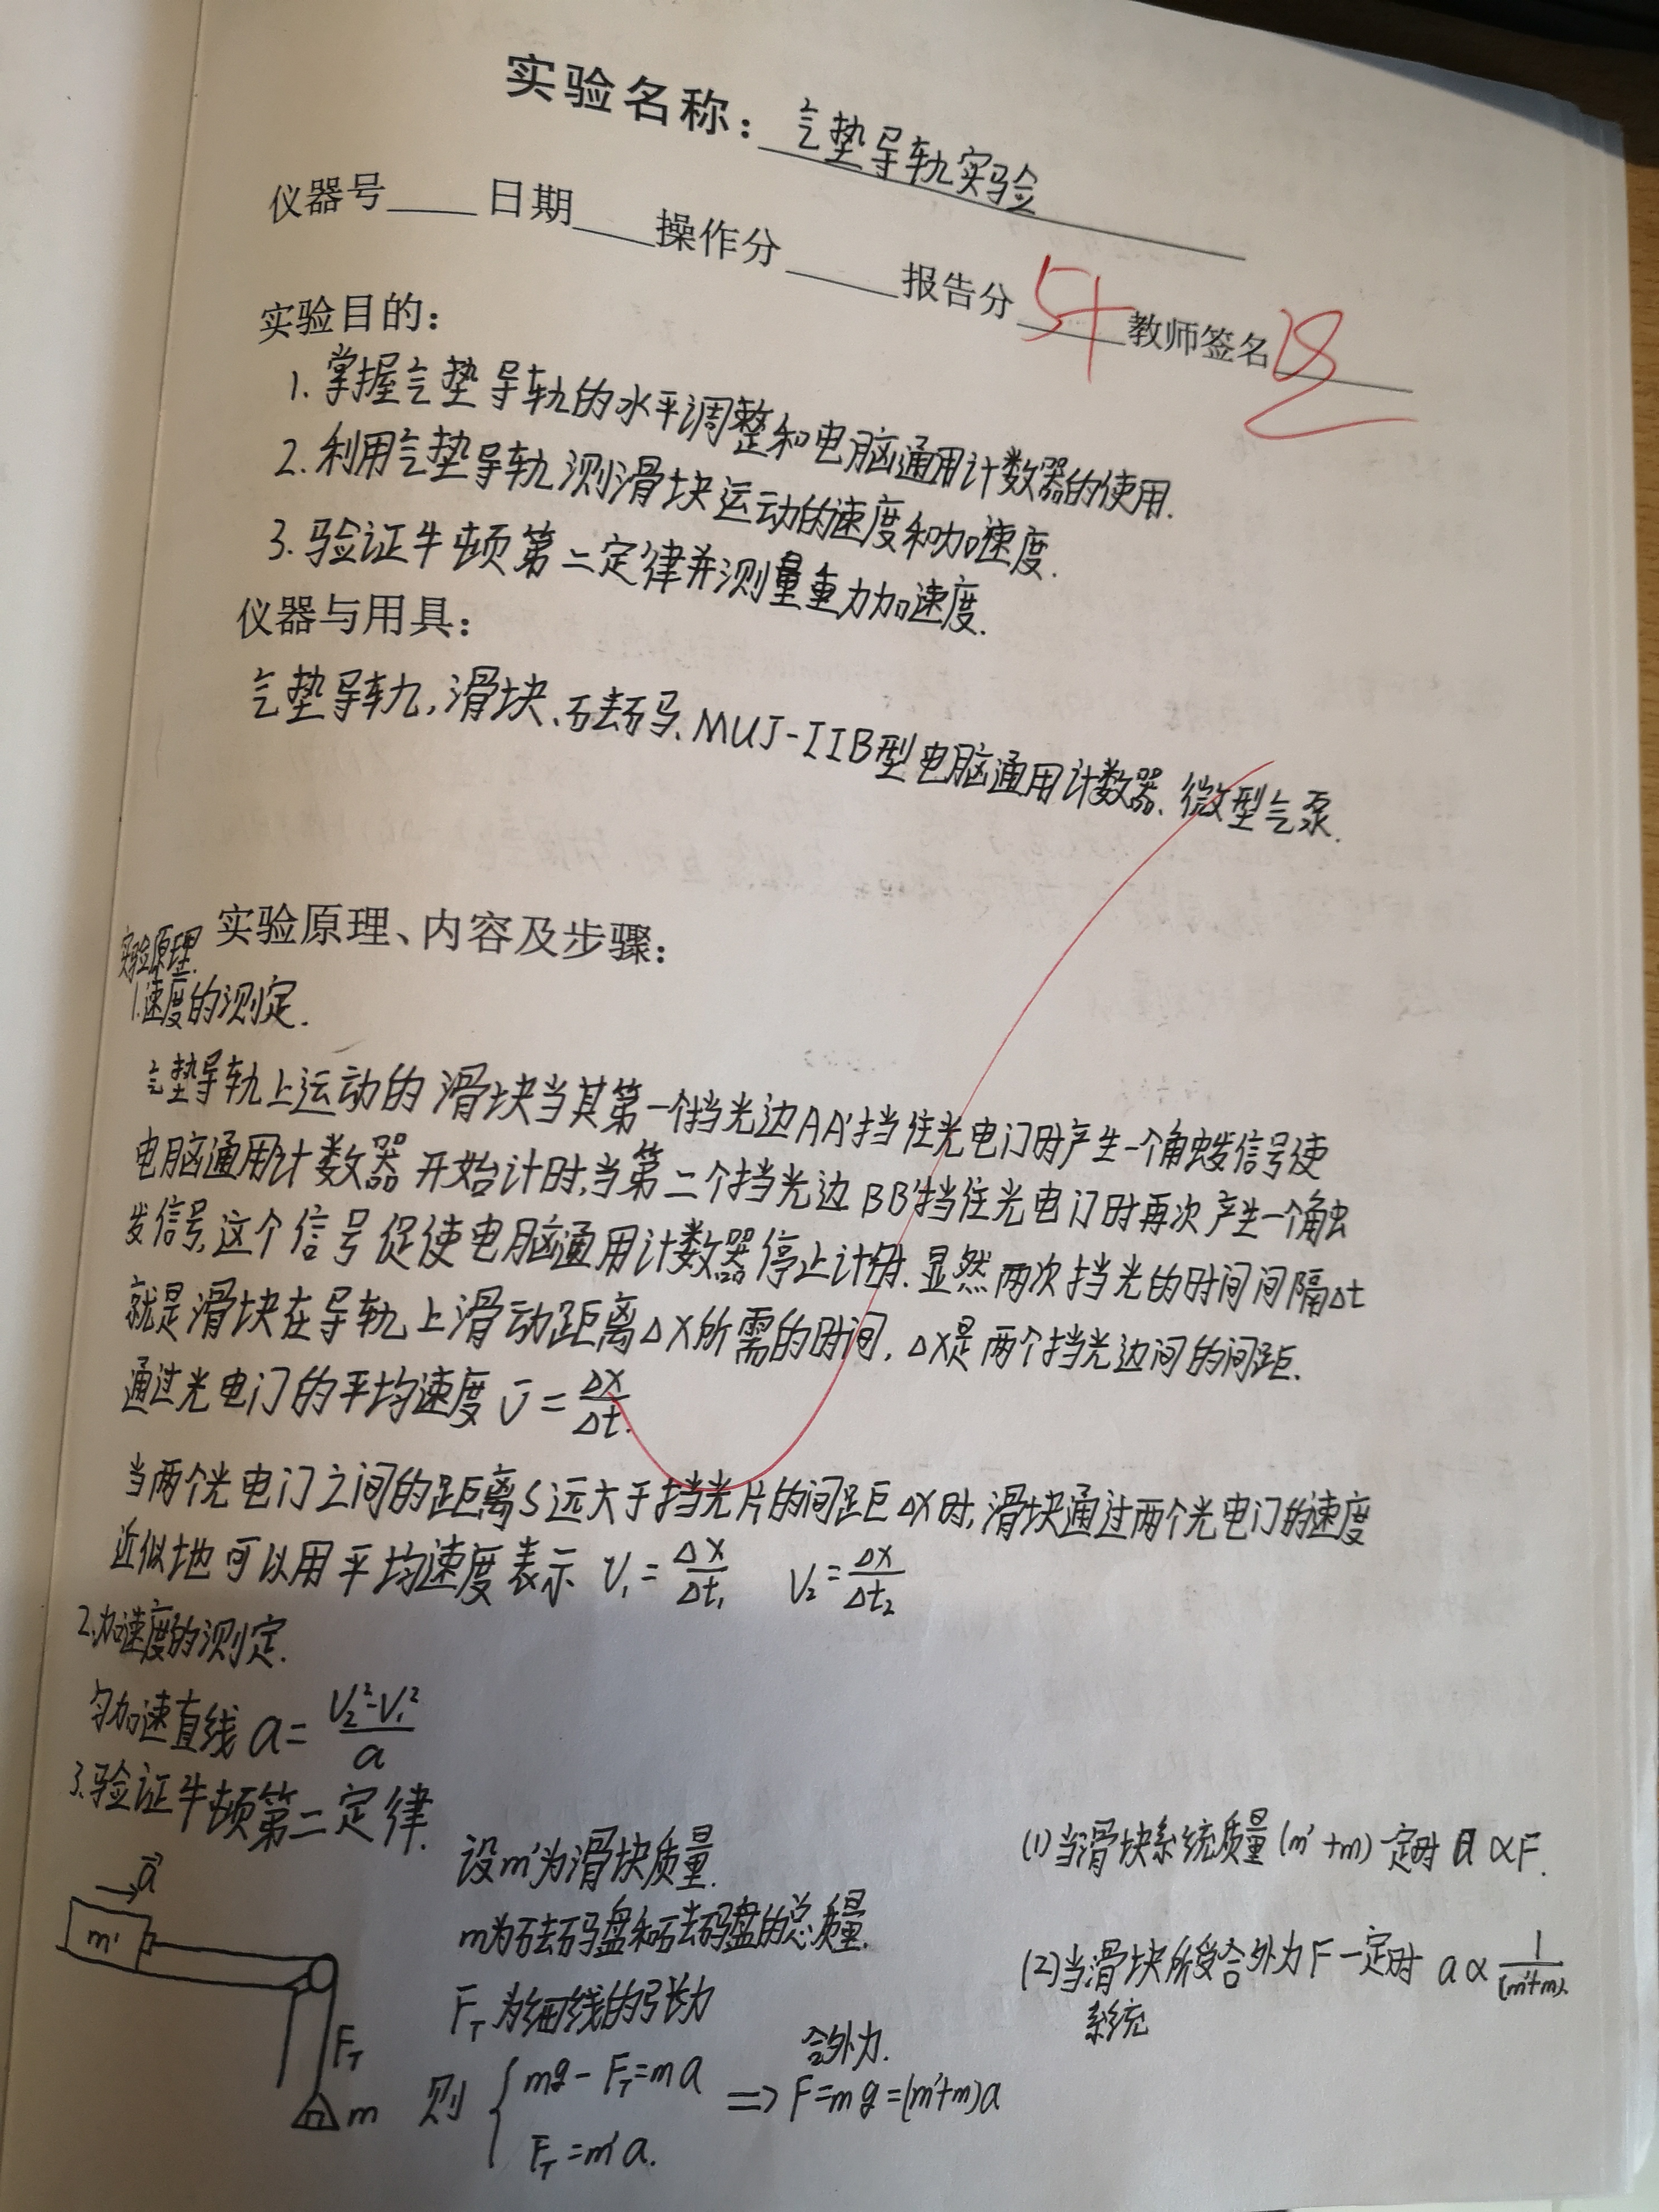 实验名称：气垫导轨实验
仪器号____日期____操作分____报告分 5+ 教师签名
实验目的：
1. 掌握气垫导轨的水平调整和电脑通用计数器的使用.
2. 利用气垫导轨测滑块运动的速度和加速度.
3. 验证牛顿第二定律并测量重力加速度.
仪器与用具：
气垫导轨,滑块、砝码、MUJ-IIB型电脑通用计数器、微型气泵.
实验原理、内容及步骤：
实验原理.
1.速度的测定.
气垫导轨上运动的滑块当其第一个挡光边AA'挡住光电门时产生一个触发信号使
电脑通用计数器开始计时,当第二个挡光边BB'挡住光电门时再次产生一个触
发信号,这个信号促使电脑通用计数器停止计时.显然两次挡光的时间间隔Δt
就是滑块在导轨上滑动距离ΔX所需的时间，ΔX是两个挡光边间的间距.
通过光电门的平均速度 v̄ = ΔX/Δt.
当两个光电门之间的距离S远大于挡光片的间距ΔX时,滑块通过两个光电门的速度
近似地可以用平均速度表示 V₁ = ΔX/Δt₁ V₂ = ΔX/Δt₂
2.加速度的测定.
匀加速直线 a = (V₂²-V₁²)/a
3.验证牛顿第二定律.
a⃗
m'
F_T
m
设m'为滑块质量.
m为砝码盘和砝码盘的总质量.
F_T 为细线的张力
则 { mg - F_T = ma
F_T = m'a.
合外力.
=> F = mg = (m'+m)a
(1)当滑块系统质量(m'+m)一定时 a ∝ F.
(2)当滑块所受合外力F一定时 a ∝ 1/(m'+m).
系统